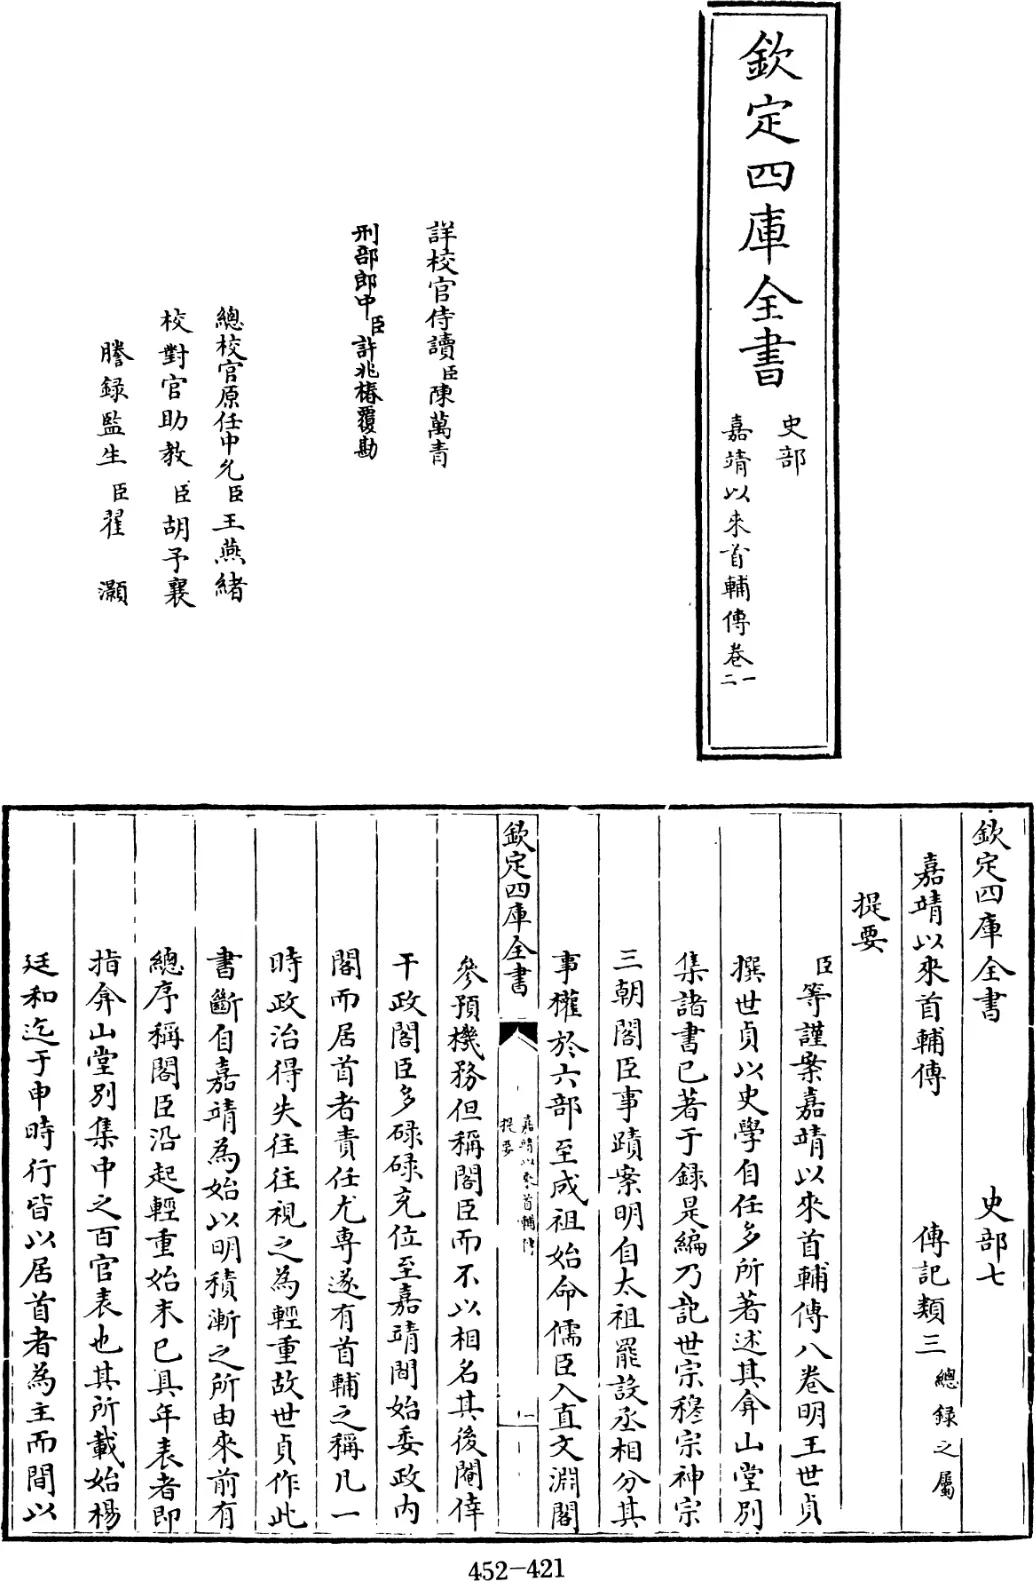 欽定四庫全書
史部
嘉靖以來首輔傳卷一二
詳校官侍讀臣陳萬青
刑部郎中臣許兆椿覆勘
總校官原任中允臣王燕緒
校對官助教臣胡予襄
謄錄監生臣翟灝
欽定四庫全書 史部七
嘉靖以來首輔傳 傳記類三總錄之屬
提要
臣等謹案嘉靖以來首輔傳八卷明王世貞
撰世貞以史學自任多所著述其弇山堂別
集諸書已著于錄是編乃記世宗穆宗神宗
三朝閣臣事蹟案明自太祖罷設丞相分其
事權於六部至成祖始命儒臣入直文淵閣
欽定四庫全書
嘉靖以來首輔傳
提要
一
參預機務但稱閣臣而不以相名其後閹倖
干政閣臣多碌碌充位至嘉靖間始委政內
閣而居首者責任尤專遂有首輔之稱凡一
時政治得失往往視之為輕重故世貞作此
書斷自嘉靖為始以明積漸之所由來前有
總序稱閣臣沿起輕重始末已具年表者即
指弇山堂別集中之百官表也其所載始楊
廷和迄于申時行皆以居首者為主而間以
452-421